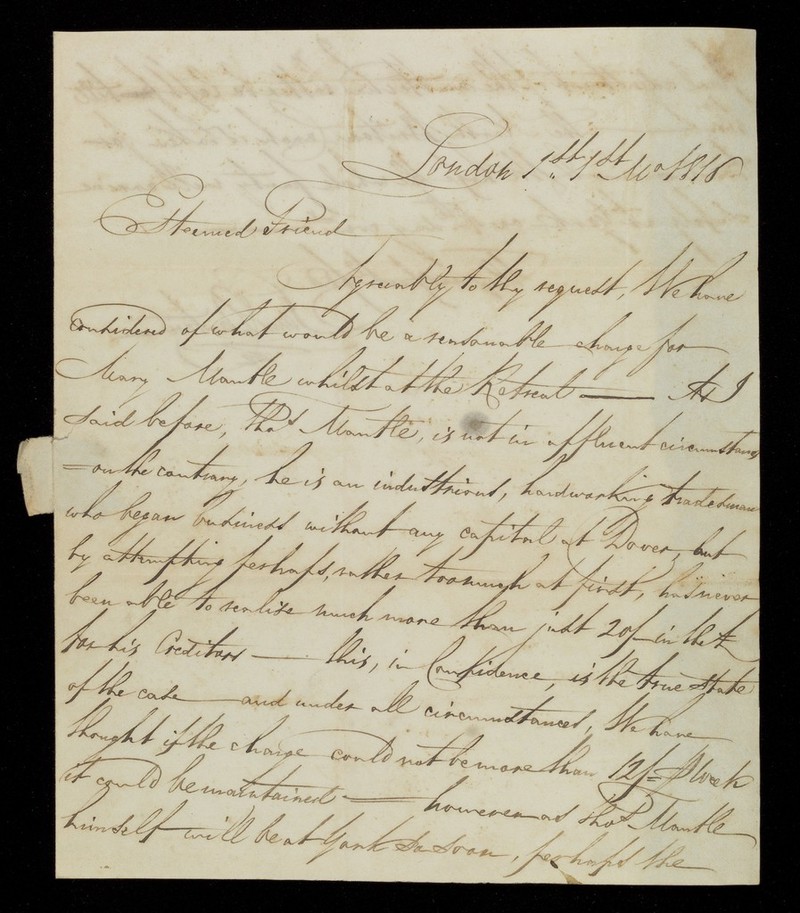 London 1st 1st Mo 1816
Esteemed Friend
Agreeably to thy request, We have
considered of what would be a reasonable charge for
Mary Mantle whilst at the Retreat — As I
said before, Thos Mantle, is not in affluent circumstances
— on the contrary, he is an industrious, hardworking tradesman
who began business without any capital at Dover, but
by attempting perhaps, rather too much at first, has never
been able to realise much more than just 20/- in the £
for his Creditors — this, in Confidence, is the true state
of the case — and under all circumstances, We have
thought if the charge could not be more than 12/- P Week
it could be maintained — however as Thos Mantle
himself will be at York so soon, perhaps the